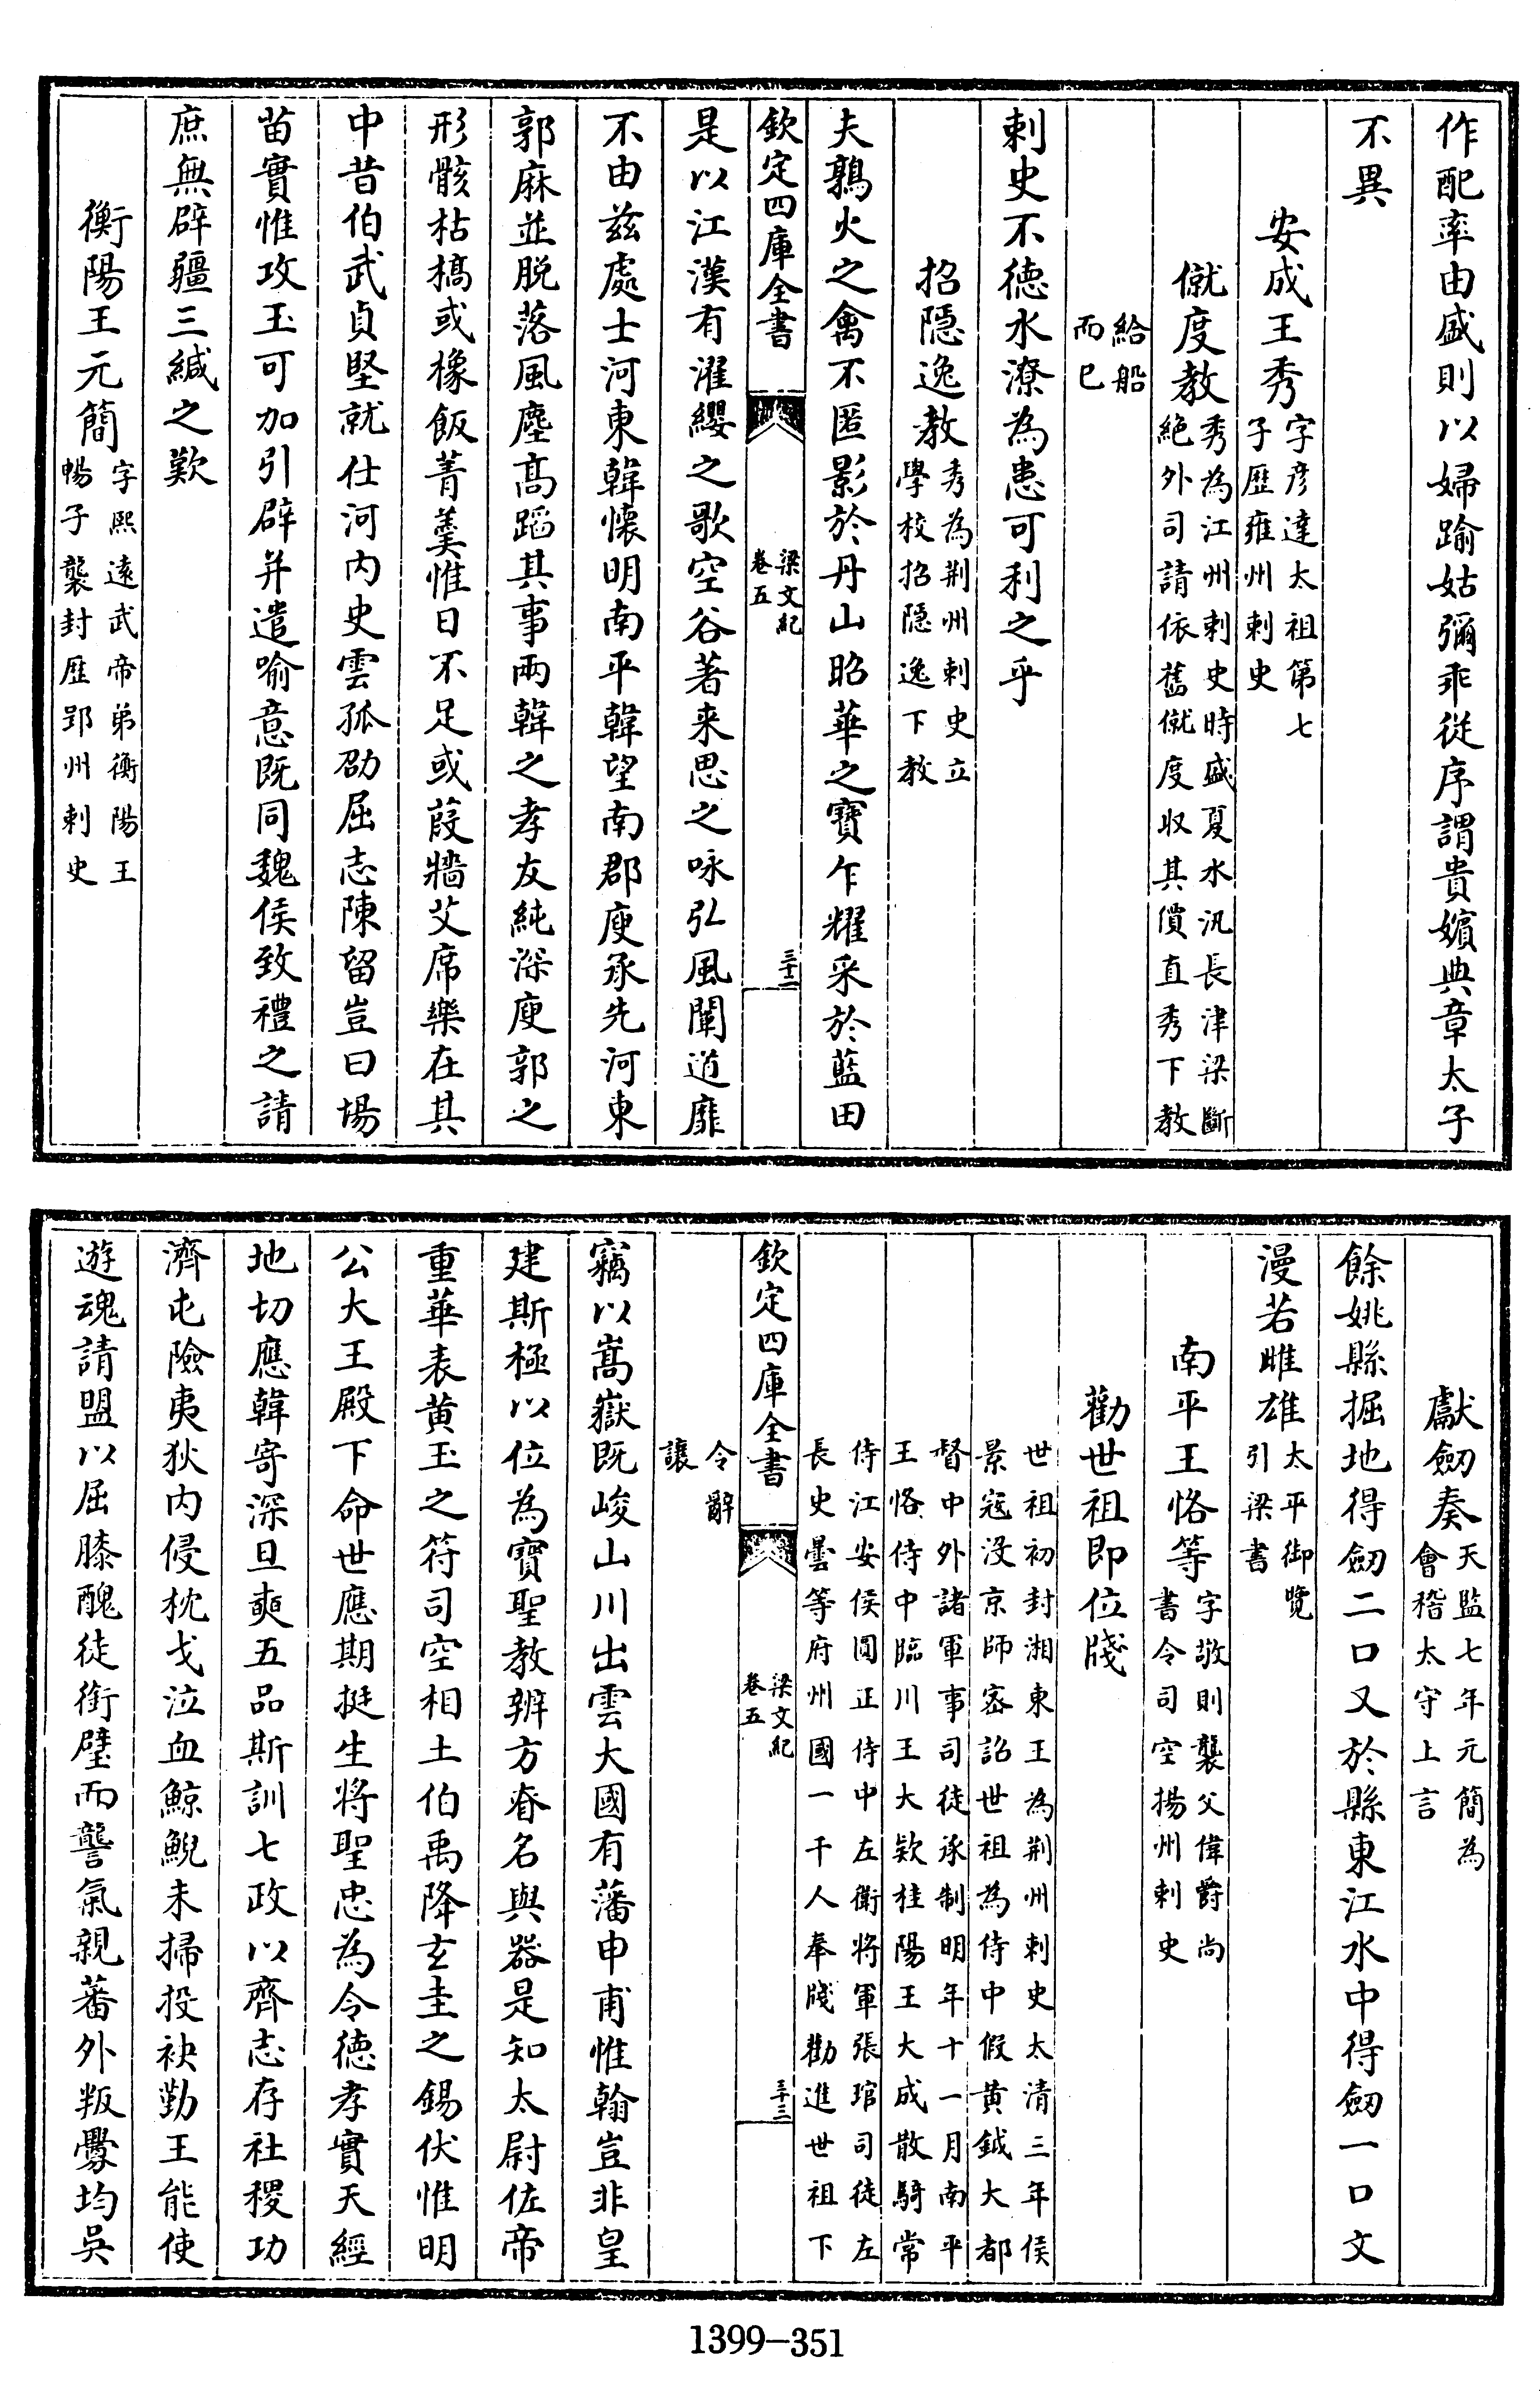 作配率由盛則以婦踰姑彌乖從序謂貴嬪典章太子
不異
安成王秀字彦達太祖第七
子歷雍州刺史
僦度教秀為江州刺史時盛夏水汎長津梁斷
絶外司請依舊僦度收其價直秀下教
給船
而已
刺史不德水潦為患可利之乎
招隠逸教秀為荆州刺史立
學校招隠逸下教
夫鶉火之禽不匿影於丹山昭華之寶乍耀采於藍田
欽定四庫全書
梁文紀
卷五
三十二
是以江漢有濯纓之歌空谷著来思之咏弘風闡道靡
不由兹處士河東韓懷明南平韓望南郡庾承先河東
郭麻並脱落風塵髙蹈其事兩韓之孝友純深庾郭之
形骸枯槁或橡飯菁羮惟日不足或葭牆艾席樂在其
中昔伯武貞堅就仕河内史雲孤劭屈志陳留豈曰場
苗實惟攻玉可加引辟并遣喻意既同魏侯致禮之請
庶無辟疆三緘之歎
衡陽王元簡字熙逺武帝弟衡陽王
暢子襲封歴郢州刺史
獻劒奏天監七年元簡為
會稽太守上言
餘姚縣掘地得劒二口又於縣東江水中得劒一口文
漫若雌雄太平御覽
引梁書
南平王恪等字敬則襲父偉爵尚
書令司空揚州刺史
勸世祖即位牋
世祖初封湘東王為荆州刺史太清三年侯
景寇没京師宻詔世祖為侍中假黄鉞大都
督中外諸軍事司徒承制明年十一月南平
王恪侍中臨川王大欵桂陽王大成散騎常
侍江安侯圓正侍中左衛將軍張琯司徒左
長史曇等府州國一千人奉牋勸進世祖下
令辭
讓
欽定四庫全書
梁文紀
卷五
三十三
竊以嵩嶽既峻山川出雲大國有藩申甫惟翰豈非皇
建斯極以位為寶聖教辨方眘名與器是知太尉佐帝
重華表黄玉之符司空相土伯禹降玄圭之錫伏惟明
公大王殿下命世應期挺生將聖忠為令德孝實天經
地切應韓寄深旦奭五品斯訓七政以齊志存社稷功
濟屯險夷狄内侵枕戈泣血鯨鯢未掃投袂勤王能使
遊魂請盟以屈膝醜徒銜璧而讋氣親蕃外叛釁均吳
1399-351